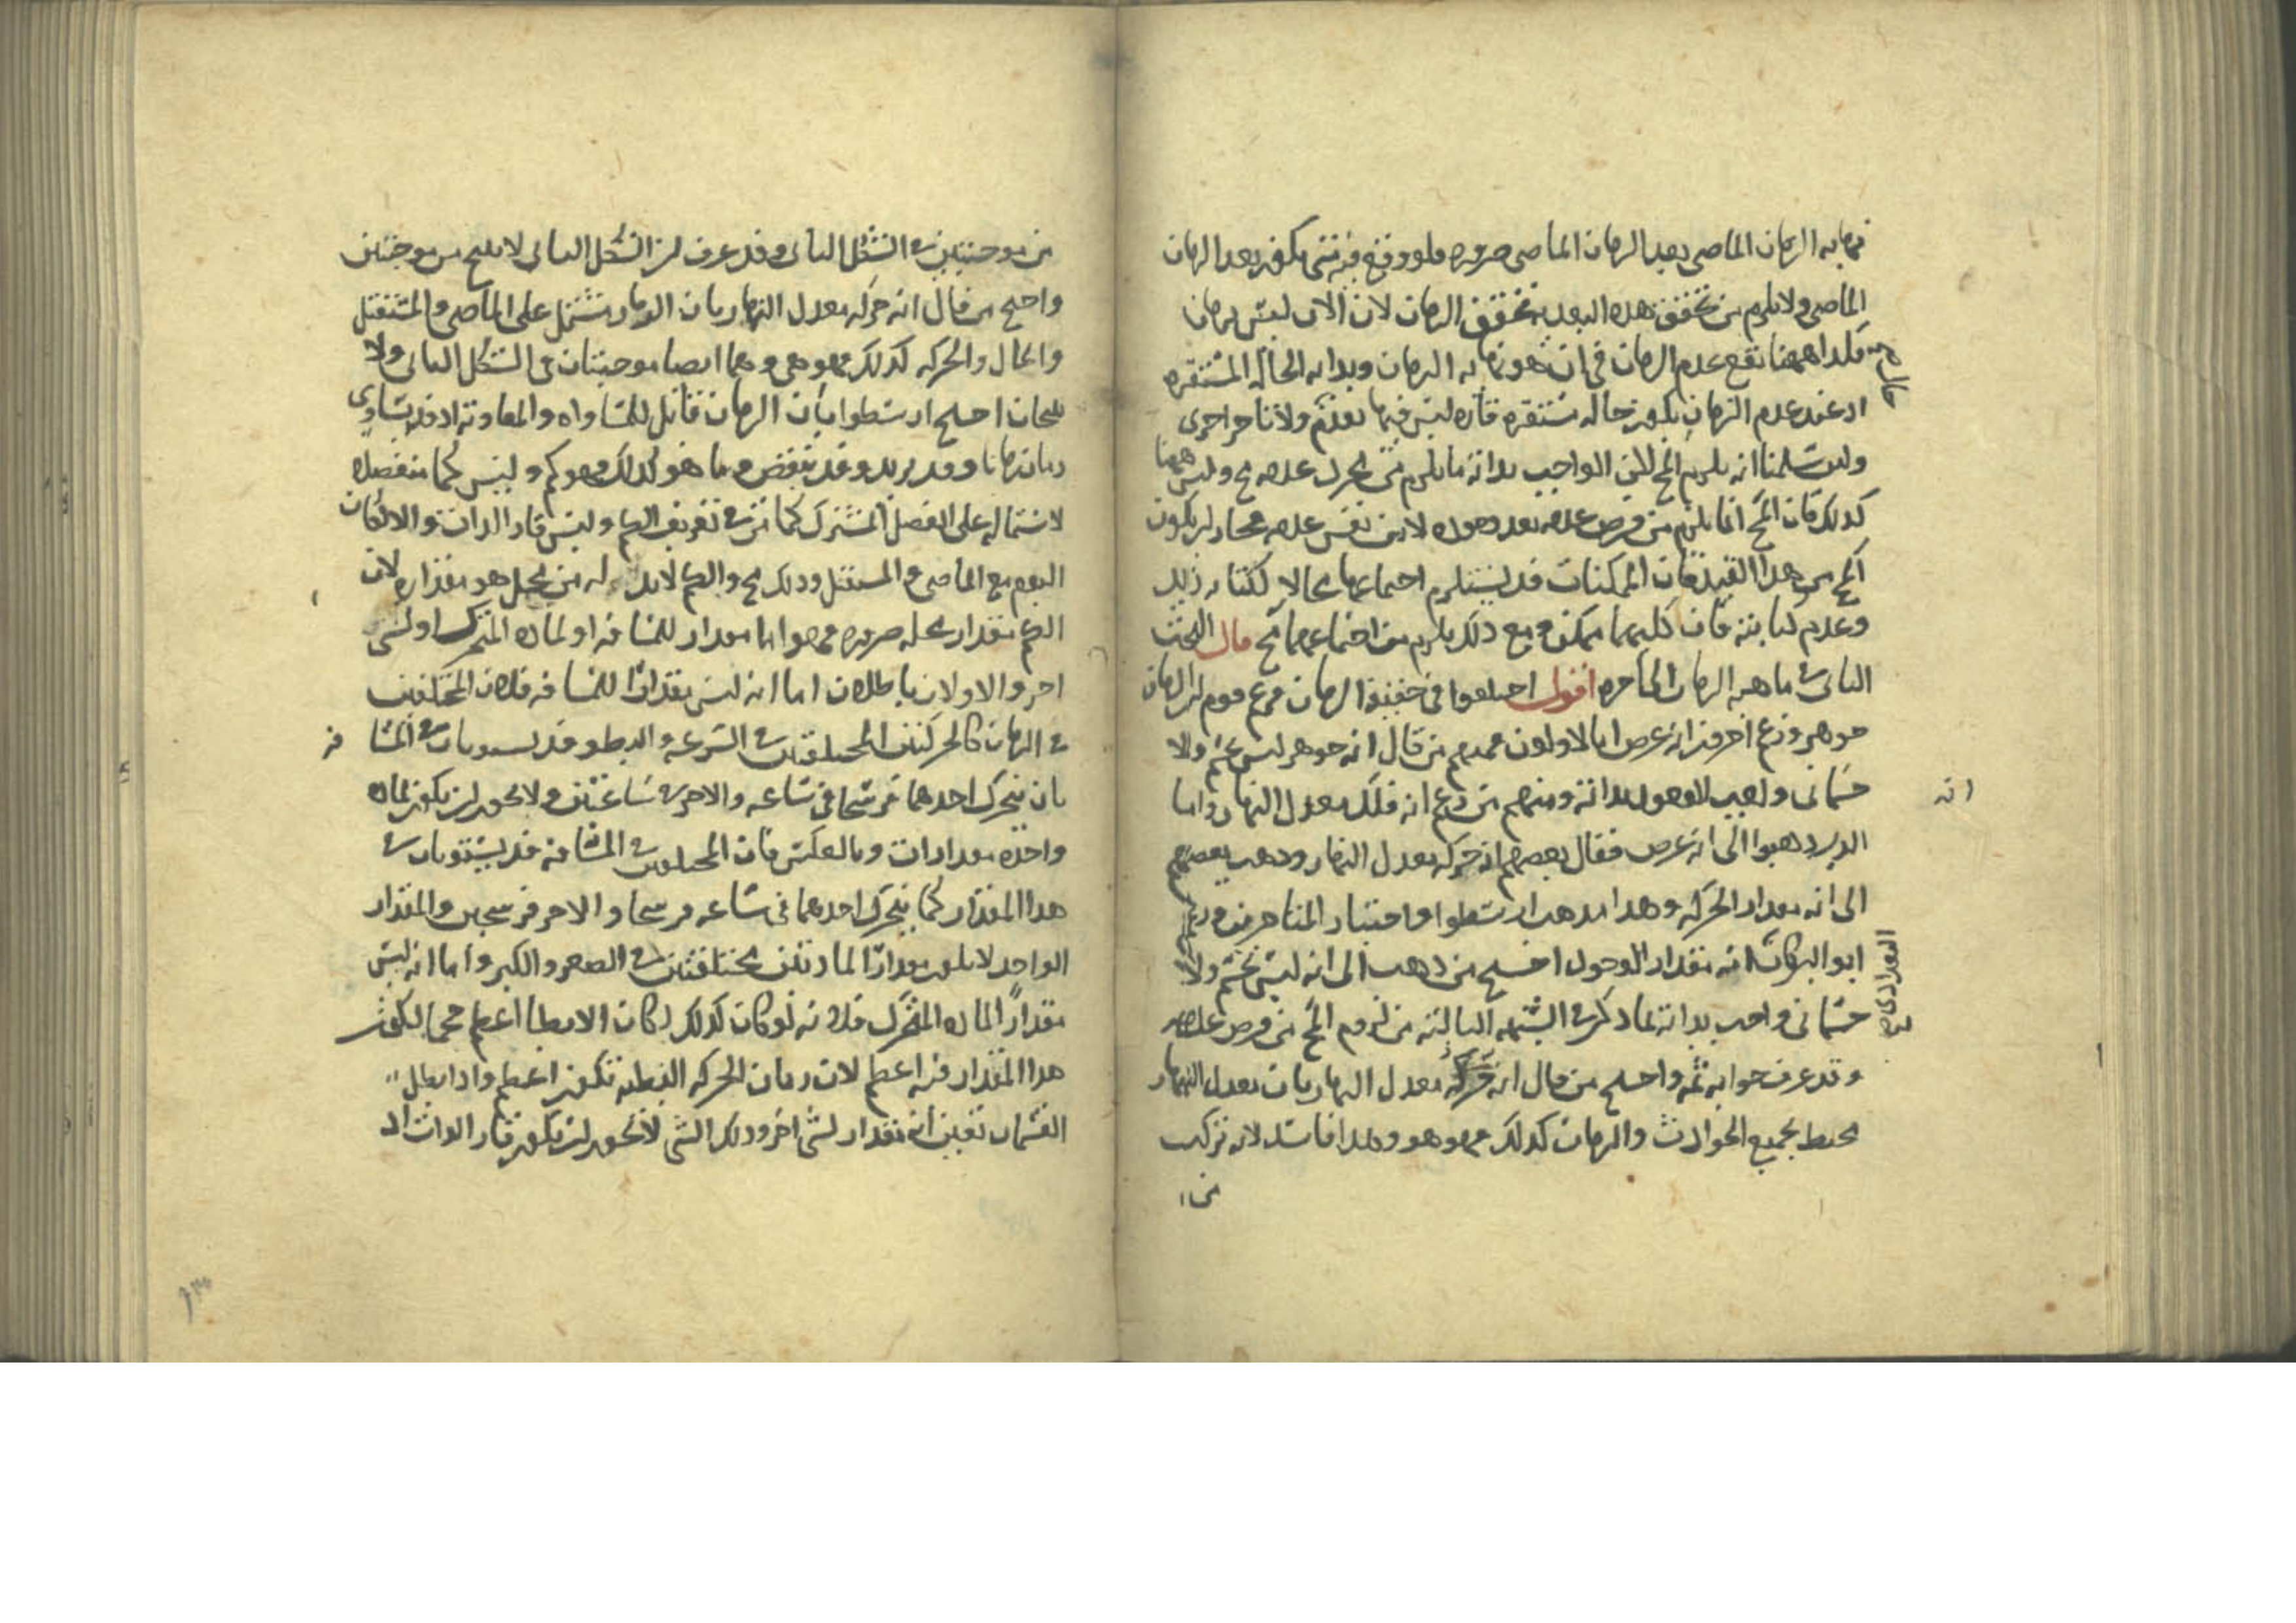 نهاية الزمان الماضي بعد الزمان الماضي ضرورة فلو وقع فيه شي يكون بعد الزمان
الماضي ولا يلزم من تحقق هذه البعدية تحقق الزمان لان الان ليس بزمان
فكذا ههنا يقع عدم الزمان في ان هو نهاية الزمان وبداية الحالة المستقرة
اذ عند عدم الزمان يكون حالة مستقرة قارة ليس فيها تقدم ولا تاخر اخرى
ولئن سلمنا انه يلزم المح لكن الواجب بذاته ما يلزم من مجرد عدمه مح وليس ههنا
كذلك فان المح انما يلزم من فرض عدمه بعد وجوده لا من نفس عدمه فجاز ان يكون
المح من هذا القيد فان الممكنات قد يستلزم اجتماعها محالا ككتابة زيد
وعدم كتابته فان كليهما ممكن ومع ذلك يلزم من اجتماعهما مح قال البحث
الثاني في ماهية الزمان الى اخره اقول اختلفوا في حقيقة الزمان فزعم قوم ان الزمان
جوهر وزعم اخرون انه عرض اما الاولون فمنهم من قال انه جوهر ليس بجسم ولا
جسماني واجب الوجود لذاته ومنهم من زعم انه فلك معدل النهار واما
انه
الذين ذهبوا الى انه عرض فقال بعضهم انه حركة معدل النهار وذهب بعضهم
الى انه مقدار الحركة وهذا مذهب ارسطو واختيار المتاخرين وزعم
ابو البركات انه مقدار الوجود احتج من ذهب الى انه ليس بجسم ولا
جسماني واجب بذاته لما ذكر في الشبهة الثالثة من لزوم المح من فرض عدمه
وقد عرف جوابه ثمة واحتج من قال انه حركة معدل النهار بان معدل النهار
محيط بجميع الحوادث والزمان كذلك فهو هو وهذا فاسد لانه تركب
من
من موجبتين في الشكل الثاني وقد عرف ان الشكل الثاني لا ينتج من موجبتين
واحتج من قال انه حركة معدل النهار بان الزمان مشتمل على الماضي والمستقبل
والحال والحركة كذلك فهو هي وهما ايضا موجبتان في الشكل الثاني ولا
ينتجان احتج ارسطو بان الزمان قابل للمساواة والمفاوتة اذ قد يساوي
زمان زمانا وقد يزيد وقد ينقص وما هو كذلك فهو كم وليس كما منفصلا
لاشتماله على الفصل المشترك كما مر في تعريف الكم وليس قار الذات والا لكان
اليوم مع الماضي والمستقبل وذلك مح والكم لابد له من محل هو مقداره لان
الكم مقدار محله ضرورة فهو اما مقدار للمسافة او لمادة المتحرك او لشي
اخر والاولان باطلان اما انه ليس مقدارا للمسافة فلان المختلفين
في الزمان كالحركتين المختلفتين في السرعة والبطو قد يستويان في المسا فة
بان يتحرك احدهما فرسخا في ساعة والاخر في ساعتين ولا يجوز ان يكون لمادة
واحدة مقدارات وبالعكس فان المختلفين في المسافة قد يستويان في
هذا المقدار كما يتحرك احدهما في ساعة فرسخا والاخر فرسخين والمقدار
الواحد لا يكون مقدارا لمادتين مختلفتين في الصغر والكبر واما انه ليس
مقدارا لمادة المتحرك فلانه لو كان كذلك لكان الابطا اعظم حجما لكون
هذا المقدار فيه اعظم لان زمان الحركة البطية تكون اعظم واذا بطل
القسمان تعين انه مقدار لشي اخر وذلك الشي لا يجوز ان يكون قار الذات اذ